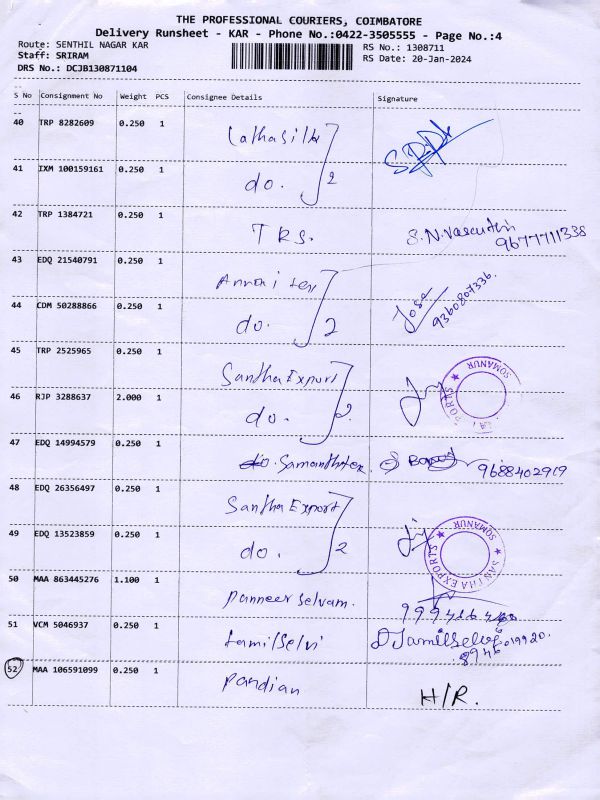 THE PROFESSIONAL COURIERS, COIMBATORE
Delivery Runsheet - KAR - Phone No.:0422-3505555 - Page No.:4
Route: SENTHIL NAGAR KAR
RS No.: 1308711
Staff: SRIRAM
RS Date: 20-Jan-2024
DRS No.: DCJB130871104
S No Consignment No Weight PCS Consignee Details Signature
40 TRP 8282609 0.250 1 Lathasilk
41 IXM 100159161 0.250 1 do. 2
42 TRP 1384721 0.250 1 TRS. S.N.Vasenthi
9677711338
43 EDQ 21540791 0.250 1 Annai tex
44 CDM 50288866 0.250 1 do. 2 Jose
9360807336.
45 TRP 2525965 0.250 1 Santha Export
SOMANUR
46 RJP 3288637 2.000 1 do. 2
47 EDQ 14994579 0.250 1 do. Samanthtex 9688402919
48 EDQ 26356497 0.250 1 Santha Export
49 EDQ 13523859 0.250 1 do. 2
★ SANTHA EXPORTS ★ SOMANUR
50 MAA 863445276 1.100 1 panneer selvam.
51 VCM 5046937 0.250 1 tamilselvi D Tamilselvi
52 MAA 106591099 0.250 1 pandian H/R.